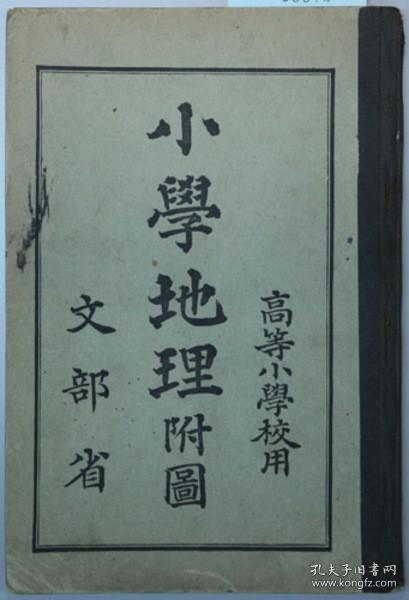 高等小學校用
小學地理附圖
文部省
孔夫子旧书网
www.kongfz.com